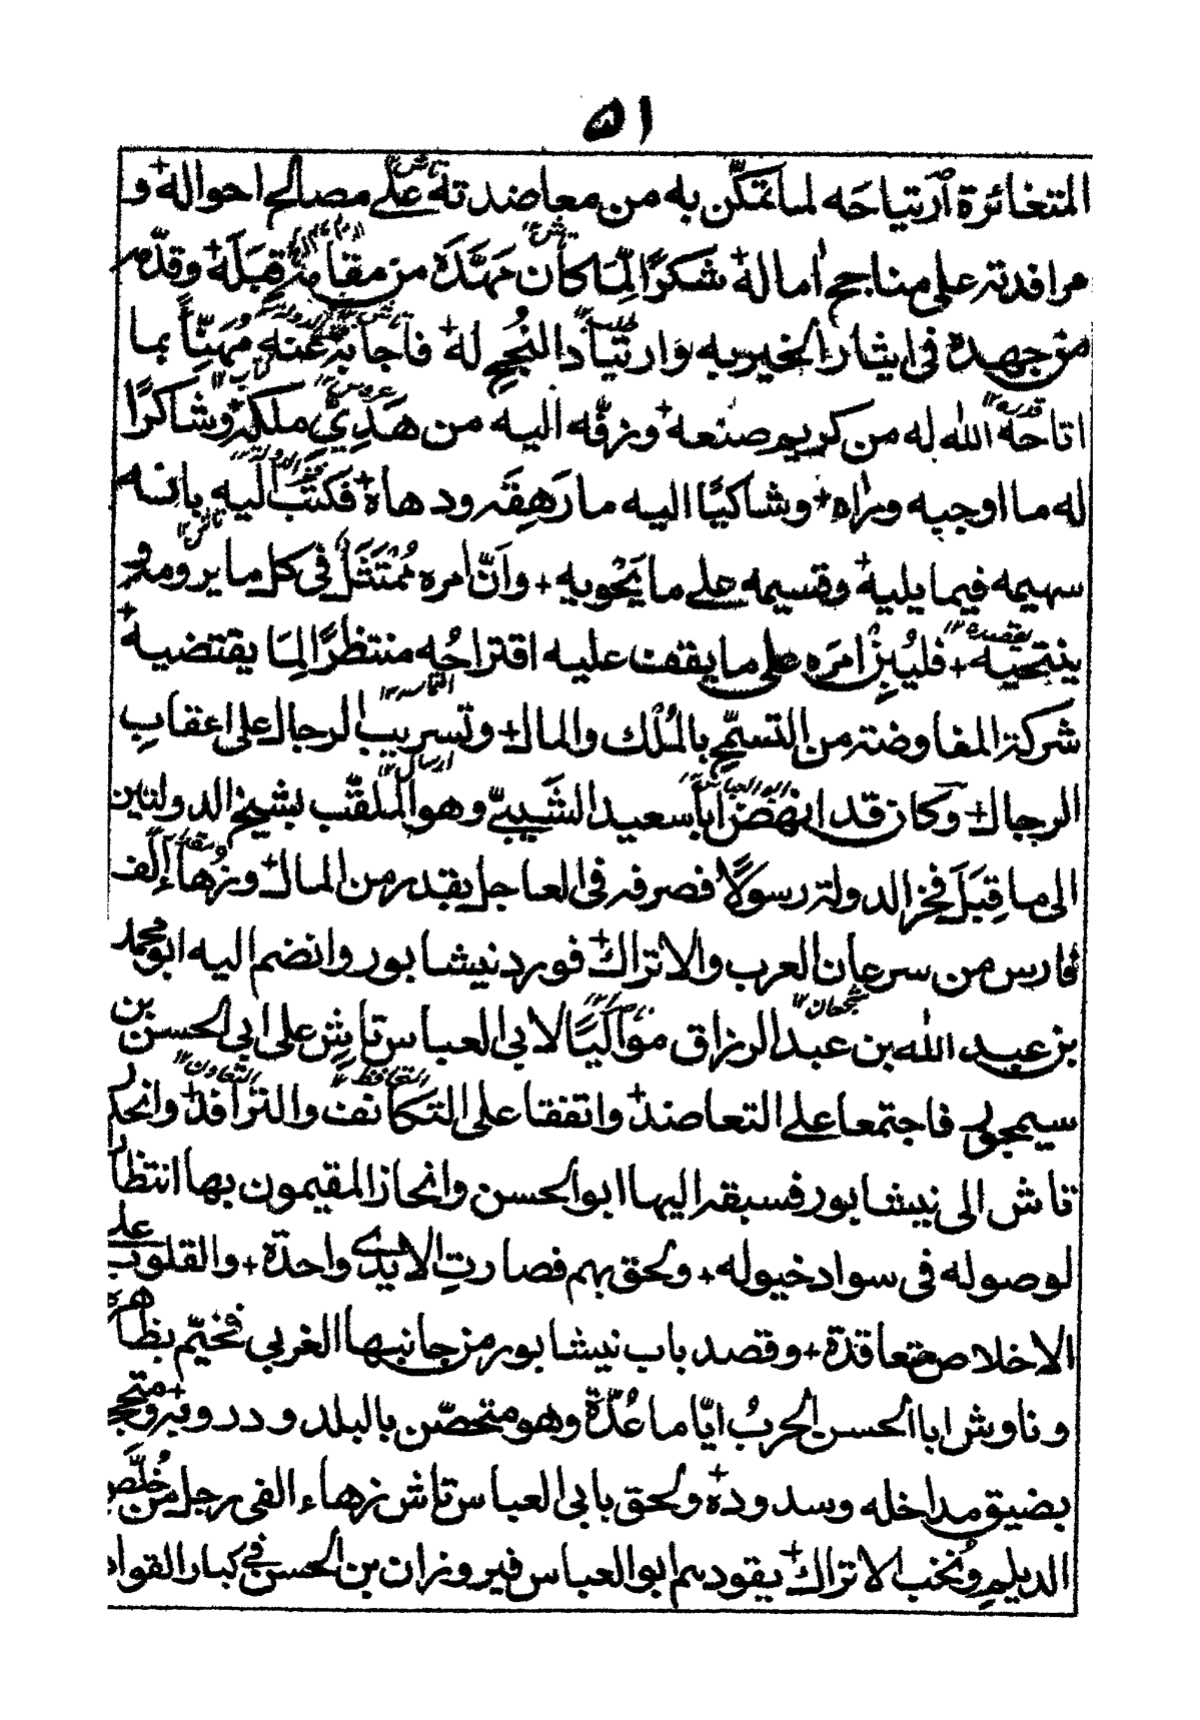 ٥١
المتغائرة ارتياحَه لما تمكّن به من معاضدته على مصالح احواله + و
مرافدته على مناجح اماله + شكرًا لِمَا كان مَهَّدَه من مقامه قِبَلَه + وقدّمه
من جهده فى ايثار الخير به وارتياد النُجح له + فاجابه عنه مُهنِّأً بما
اتاحه الله له من كريم صنعه + وزفّه اليه من هَدِيّ ملكه + وشاكرًا
له ما اوجبه وراه + وشاكيًا اليه ما رَهِقَه ودهاه + فكتب اليه بانه
سهيمه فيما يليه + وقسيمه على ما يَحْويه + وانّ امره مُمْتَثَل فى كل ما يرومه و
ينتحيه + فليُبِنْ امرَه على ما يقف عليه اقتراحُه منتظرًا لِمَا يقتضيه +
شركة المفاوضة من التسمّح بالمُلك والمال + وتسريب الرجال على اعقابِ
الرجال + وكان قد انهض ابا سعيد الشَيبيّ وهو الملقّب بشيخ الدولتين
الى ما قِبَلَ فخر الدولة رسولًا فصرفه فى العاجل بقدر من المال + وزهاء الف
فارس من سرعان العرب والاتراك + فورد نيشابور وانضم اليه ابو محمد
بن عبد الله بن عبد الرزاق مواليًا لابى العباس تاش على ابى الحسن بن
سيمجور فاجتمعا على التعاضد + واتفقا على التكانف والترافد + وانحدر
تاش الى نيشابور فسبقه اليها ابو الحسن وانحاز المقيمون بها انتظارا
لوصوله فى سواد خيوله + ولحق بهم فصارتِ الايدى واحدة + والقلوب على
الاخلاص متعاقدة + وقصد باب نيشابور من جانبها الغربى فخيّم بظاهره
وناوش ابا الحسن الحربُ ايّاما عُدّة وهو متحصّن بالبلد ودروبه +
بضيق مداخله وسدوده + ولحق بابى العباس تاش زهاء الفى رجل من خُلَّص
الديلم ونُخب الاتراك + يقودهم ابو العباس فيروزان بن الحسن فى كبار القواد